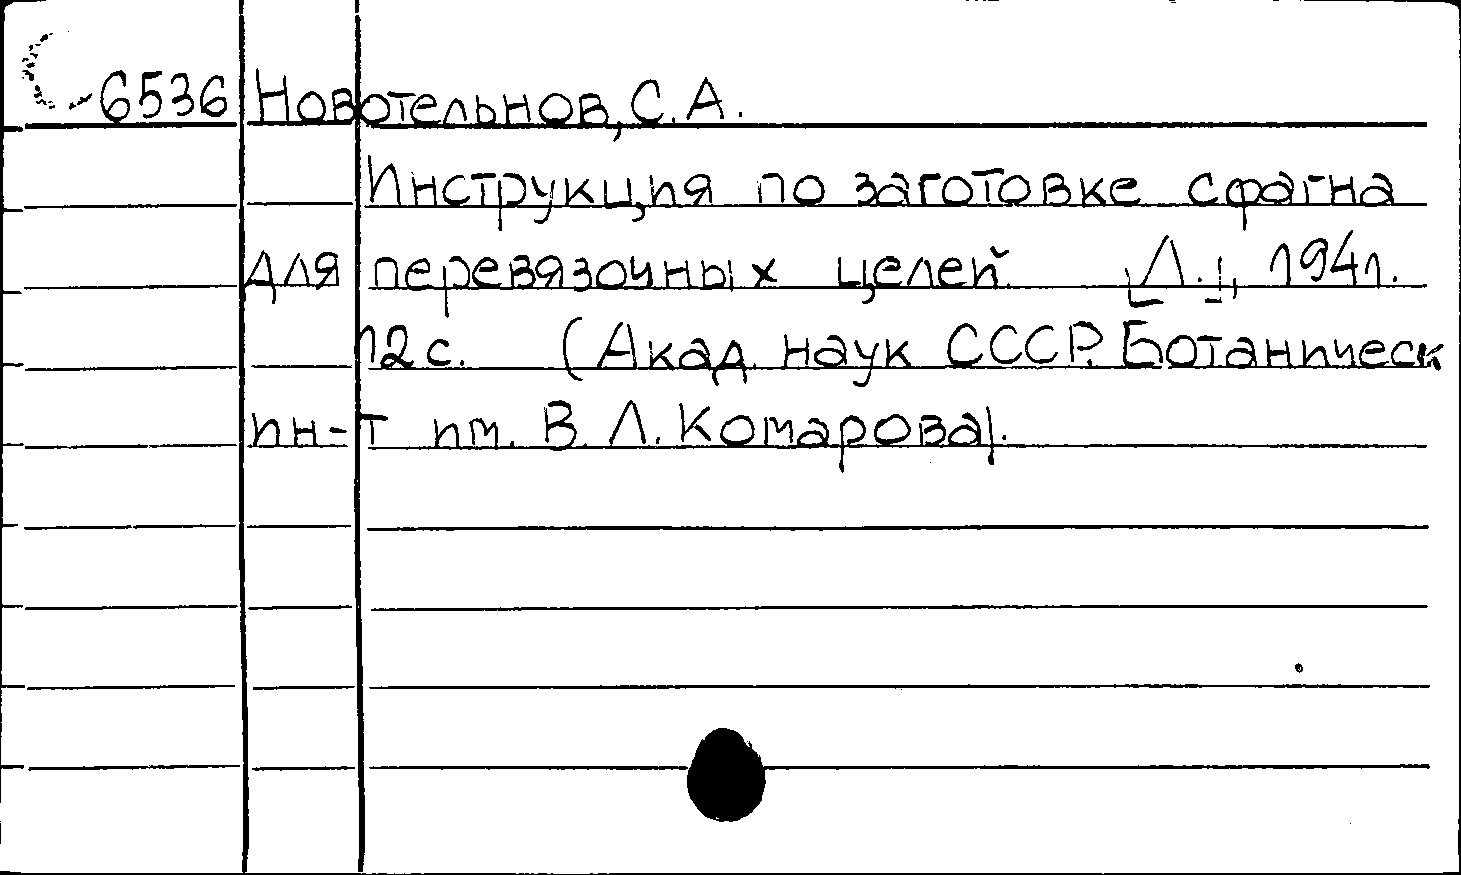 6536 Новотельнов, С. А.
Инструкция по заготовке сфагна
для перевязочных целей [Л.], 1941.
12 с. (Акад. наук СССР. Ботаническ
ин-т им. В. Л. Комарова).